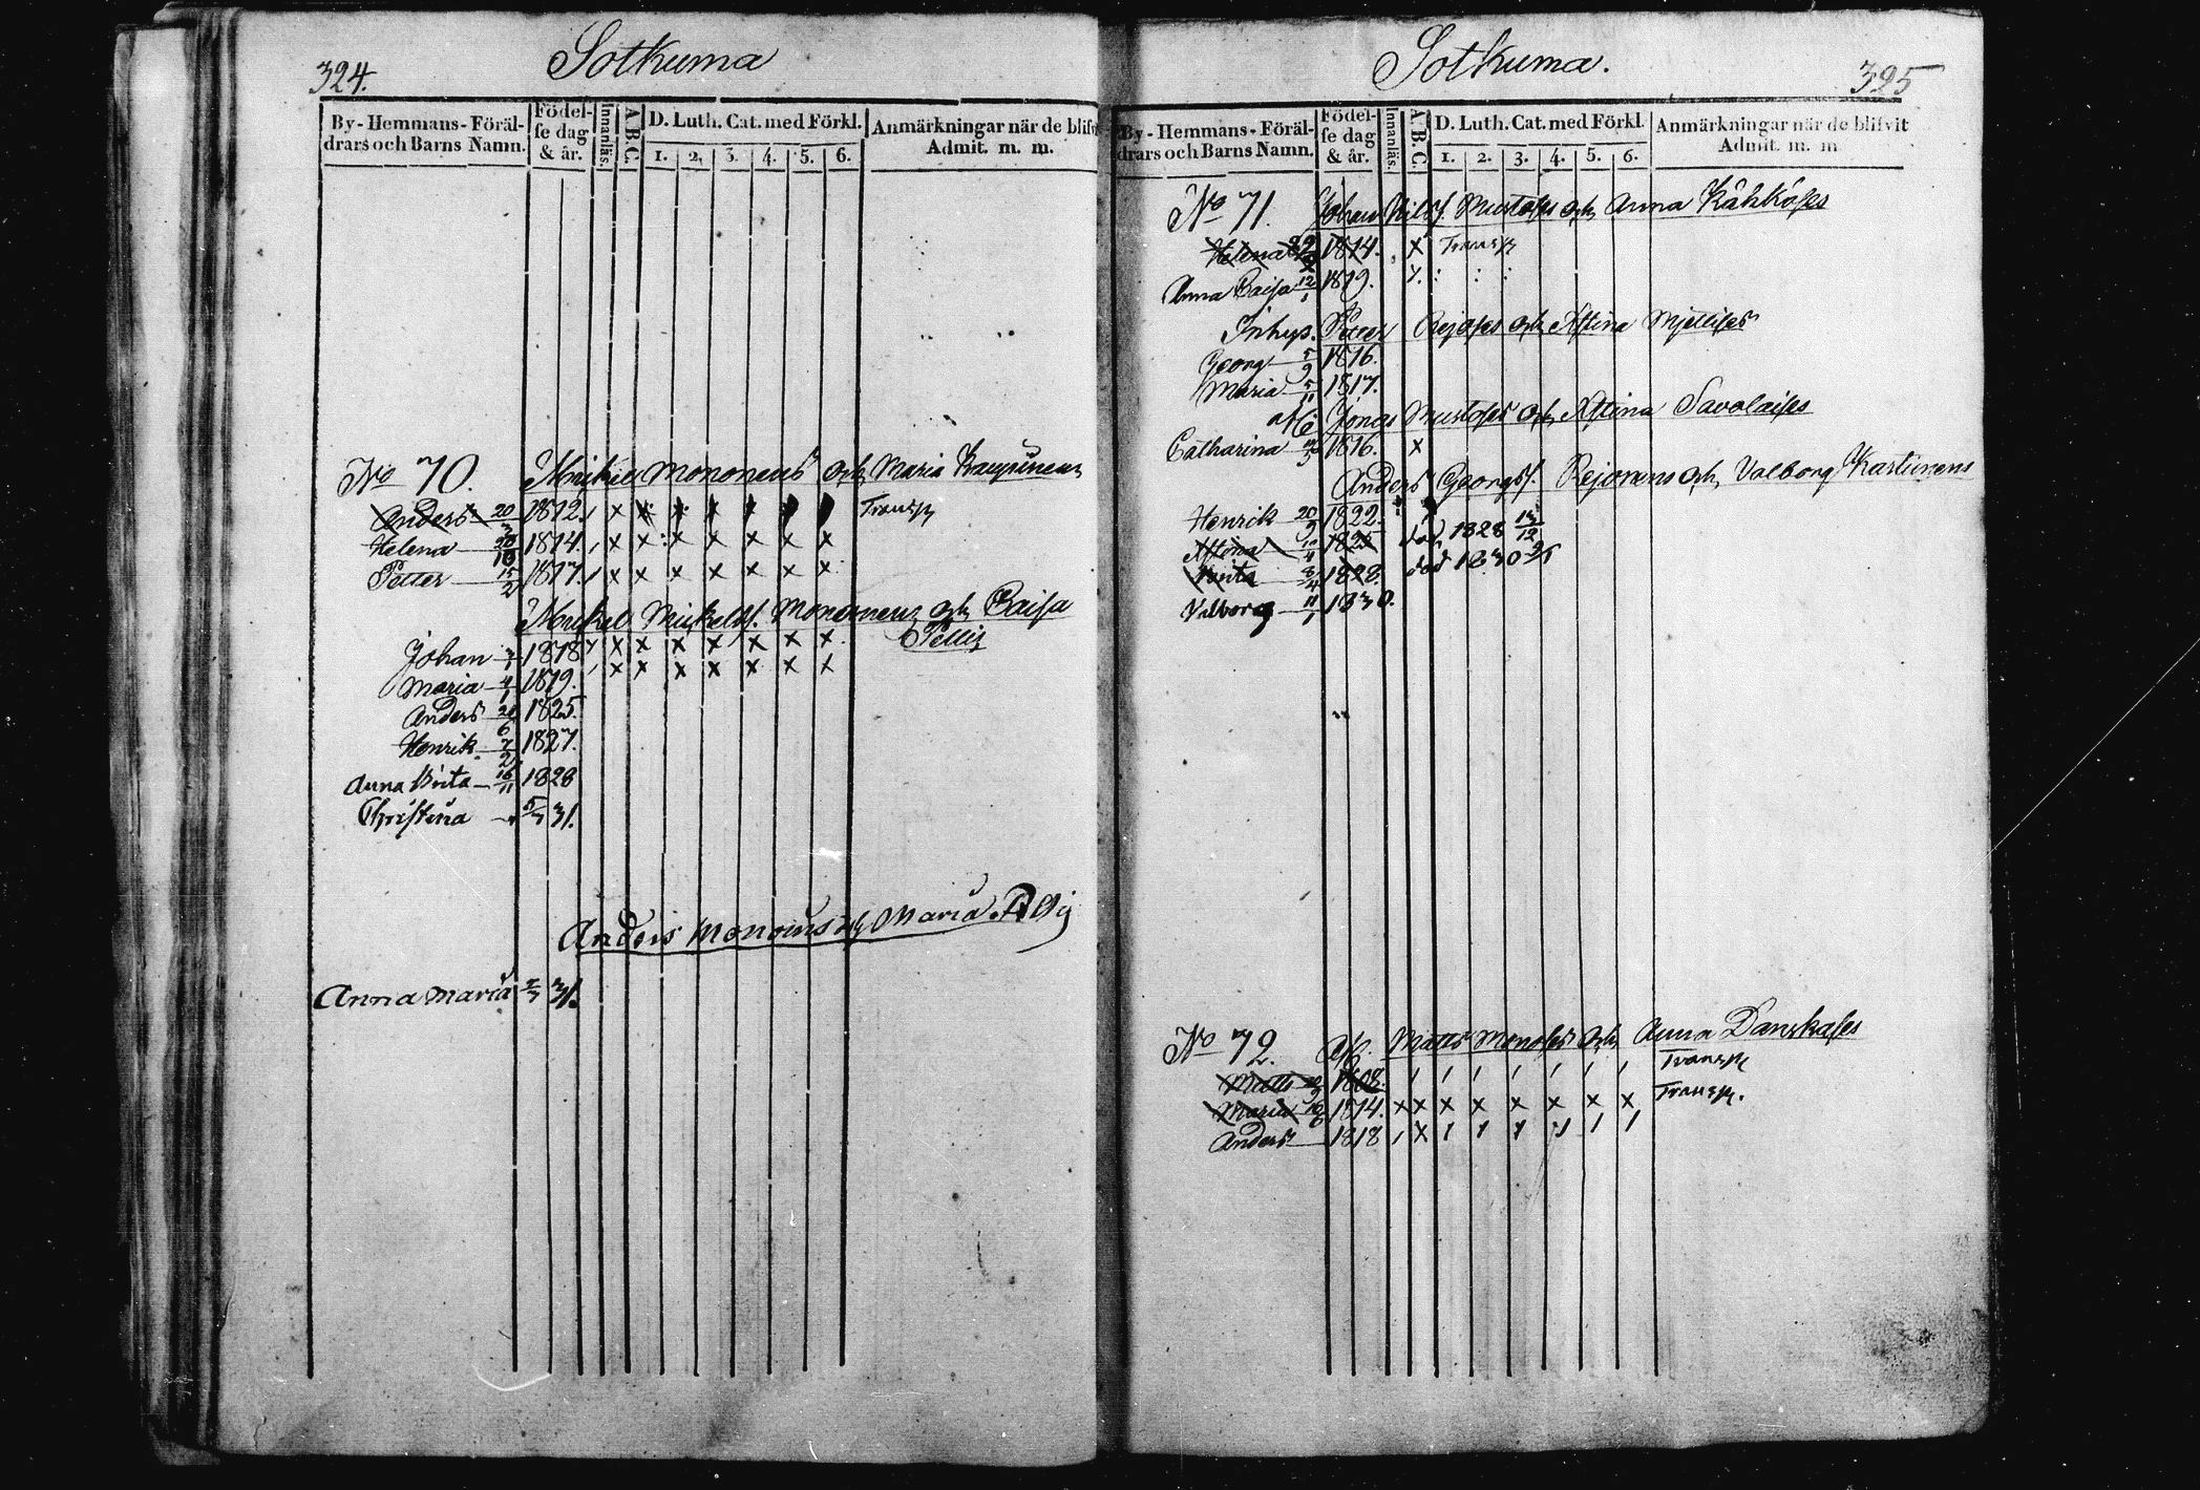 324.
Sotkuma
By-Hemmans-Föräl-
drars och Barns Namn.
Födel-
se dag
& år.
Innanläs.
A.B.C.
D. Luth. Cat. med Förkl.
1. 2. 3. 4. 5. 6.
Anmärkningar när de blifvit
Admit. m. m.
No 70. Mikel Mononens och Maria
Anders 20/3 1812. / x x x x x Transp
Helena 20/10 1814. / x x x x x x x
Petter 15/2 1817. / x x x x x x x
Mikel Mickelsf. Mononens och Caisa
Pellis
Johan 1818 x x x x x x x
Maria 4/1 1819. / x x x x x x x
Anders 20/6 1825.
Henrik 7/2 1827.
Anna Brita 16/11 1828
Christina 5/3 31.
Anders Mononens och Maria
Anna Maria 31.
Sotkuma.
325
By-Hemmans-Föräl-
drars och Barns Namn.
Födel-
se dag
& år.
Innanläs.
A.B.C.
D. Luth. Cat. med Förkl.
1. 2. 3. 4. 5. 6.
Anmärkningar när de blifvit
Admit. m. m.
No 71. Johan Nilsf. Mustoses och Anna Kähköses
Helena 1814. x Transp
Anna Caisa 12 1819.
Inhys. Petter och Stina
Georg 5/9 1816.
Maria 5/11 1817.
Jonas Mustoses och Stina Savolaises
Catharina 1816. x
Anders Georgsf. Rejonens och Valborg Karttunens
Henrik 20/9 1822.
Stina 1825 död 1828 13/12
Brita 8/4 1828. död 1830
Valborg 11/1 1830.
No 72. Matts Monoses och Anna Danskases
Matts 1808. / / / / / / / Transp
Maria 1814. x x x x x x x x Transp.
Anders 1818 / x / / / / / /